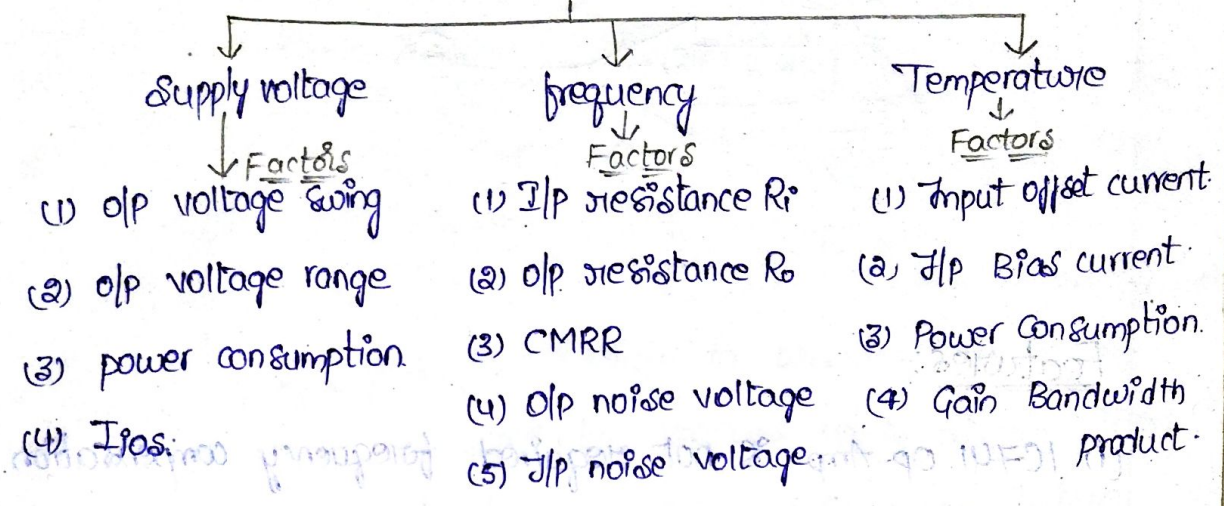 Supply voltage
Factors
(1) O/P voltage swing
(2) O/P voltage range
(3) power consumption.
(4) Iios.
frequency
Factors
(1) I/P resistance Ri
(2) O/P. resistance Ro
(3) CMRR
(4) O/P noise voltage
(5) I/P noise voltage.
Temperature
Factors
(1) Input offset current.
(2) I/P Bias current.
(3) Power Consumption.
(4) Gain Bandwidth
product.